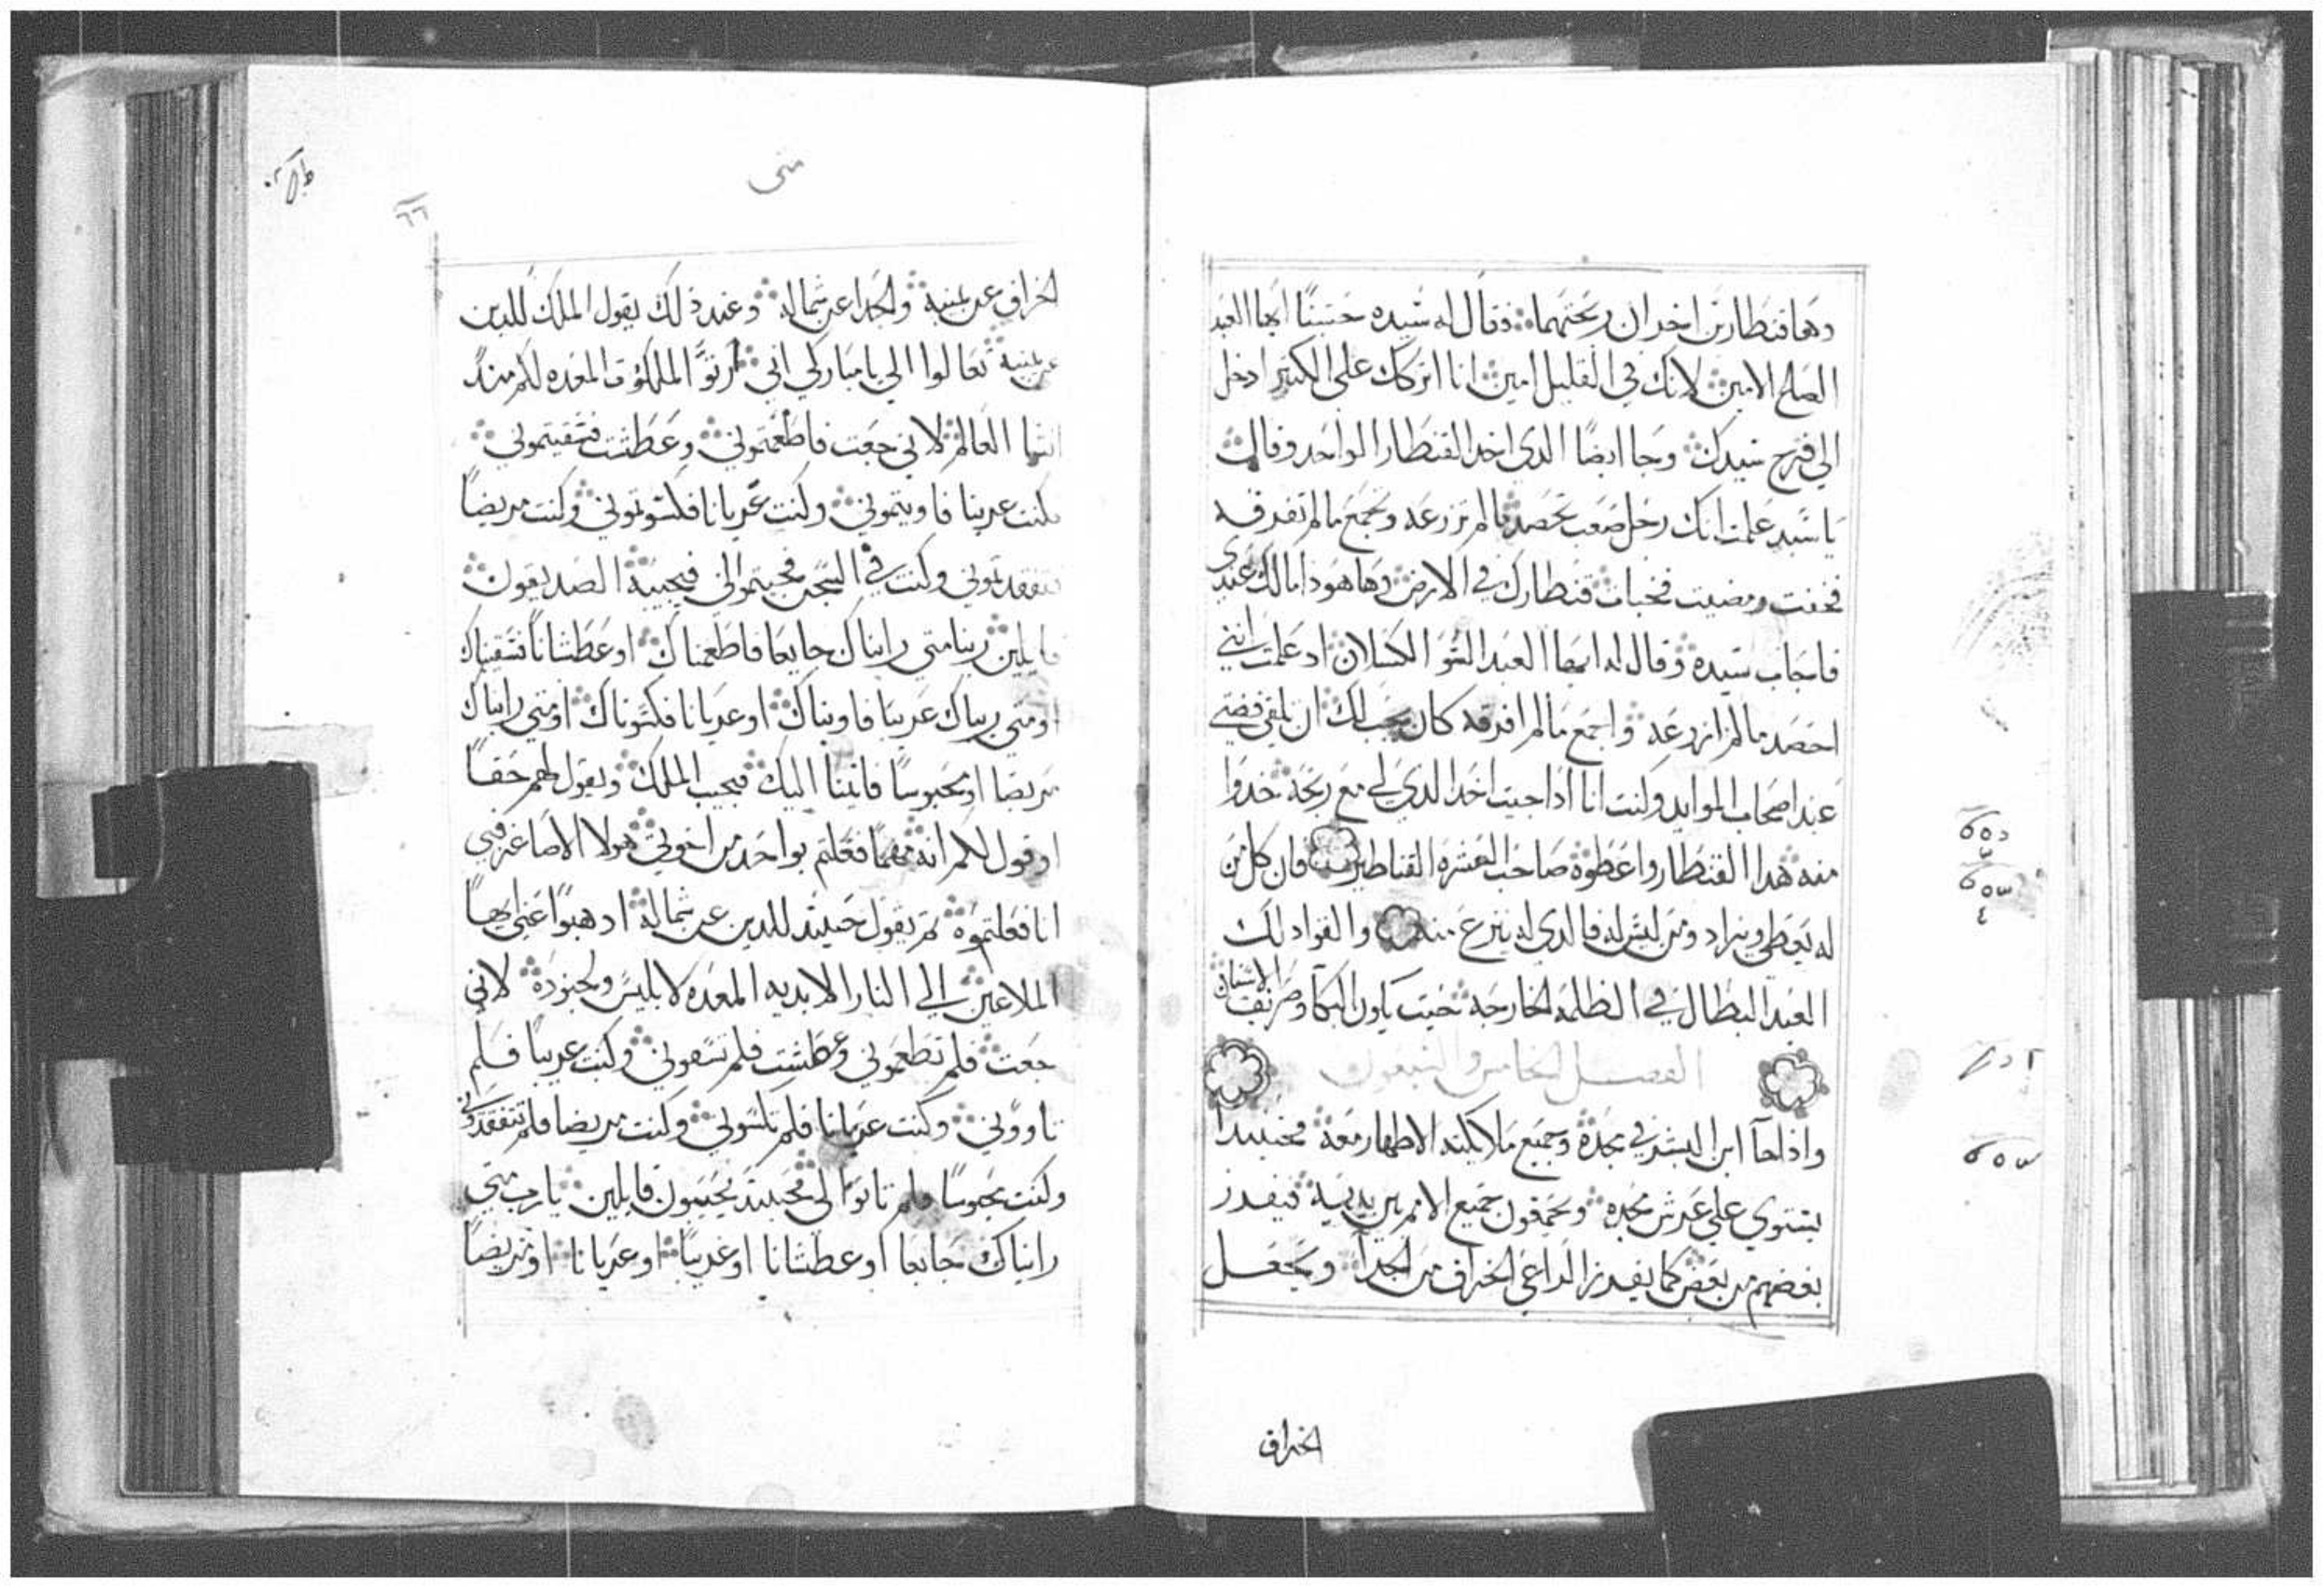 وها قنطارين اخران ربحتهما فقال له سيده حسنًا ايها العبد
الصلح الامين لانك في القليل امين انا اتركك على الكتير ادخل
الي فرح سيدك وجا ايضًا الدي اخد القنطار الواحد وقال
يا سيد علمت انك رجل صعب تحصد مالم تزرعه وتجمع مالم تفرقه
فخفت ومضيت فخبات قنطارك في الارض وها هودا مالك عندي
فاجاب سيده وقال له ايها العبد السو الكسلان اد علمت انني
احصد مالم ازرعه واجمع مالم افرقه كان يجب لك ان تلقي فضتي
عند اصحاب الموايد وكنت انا اذا جيت اخد الدي لي مع ربحه خدوا
منه هدا القنطار واعطوه صاحب العشره القناطير فان كل من
له يعطي ويزاد ومن ليس له فالدي له ينزع منه والقوا دلك
العبد البطال في الظلمه الخارجه حيت يكون البكا وصرير الاسنان
الفصل الخامس والتسعون
واذا جآ ابن البشر في مجده وجميع ملايكته الاطهار معه فحينيدا
يستوي على عرش مجده ويجمعون جميع الامم بين يديه فيفرز
بعضهم من بعض كما يفرز الراعي الخراف من الجدآ ويجعل
الخراف
متى
٦٦
الخراف عن يمينه والجدا عن شماله وعند ذلك يقول الملك للدين
عن يمينه تعالوا الي يا مباركي ابي ارتوا الملكوت المعده لكم مند
انشا العالم لاني جعت فاطعمتموني وعطشت فسقيتموني
وكنت غريبا فاويتموني وكنت عريانا فكسوتموني وكنت مريضاً
فتفقدتموني وكنت في السجن فجيتم الي فيجيبه الصديقون
قايلين ربنا متي رايناك جايعا فاطعمناك او عطشاناً فسقيناك
او متي رايناك غريبا فاويناك او عريانا فكسوناك او متي رايناك
مريضا او محبوسًا فاتينا اليك فيجيب الملك ويقول لهم حقاً
اقول لكم انه مهما فعلتم بواحد من اخوتي هولا الاصاغر فبي
انا فعلتموه ثم يقول حينيد للدين عن شماله ادهبوا عني ايها
الملاعين الي النار الابديه المعده لابليس وجنوده لاني
جعت فلم تطعموني وعطشت فلم تسقوني وكنت غريباً فلم
تاووني وكنت عريانا فلم تكسوني وكنت مريضا فلم تتفقدوني
وكنت محبوسًا فلم تاتوا الي فحينيد يجيبون قايلين يا رب متي
رايناك جايعا او عطشانا او غريبا او عريانا او مريضاً